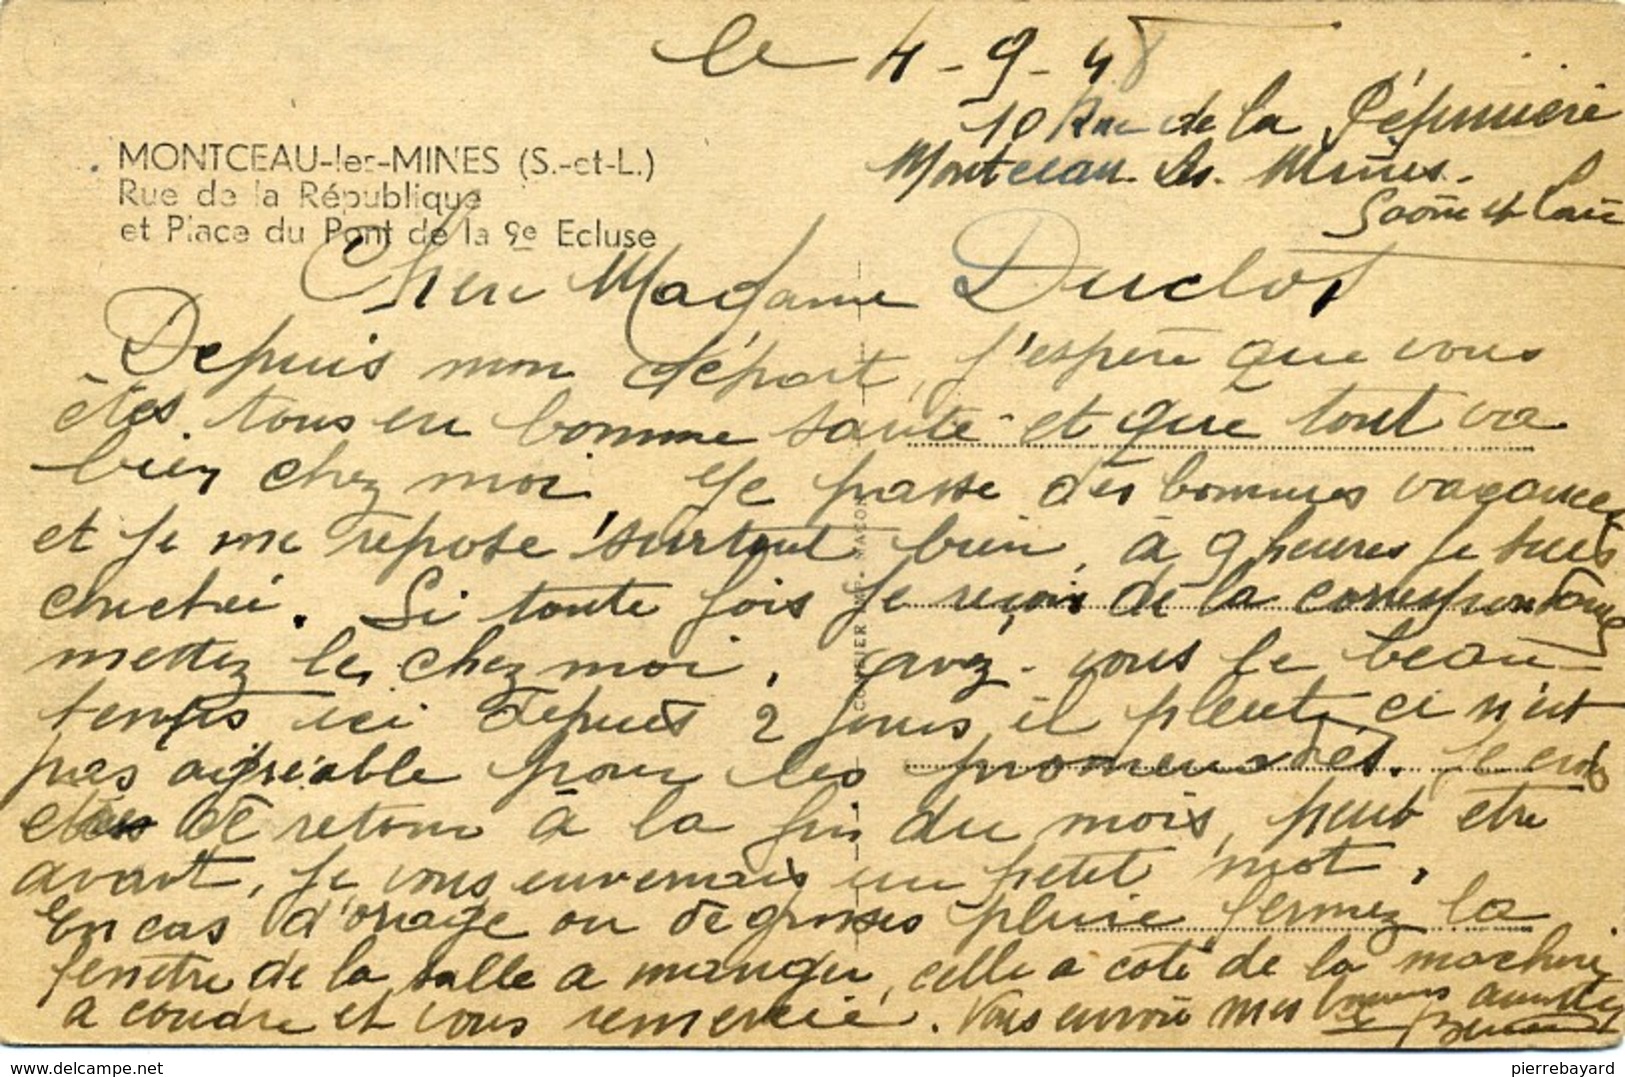 le 4-9-48
10 Rue de la Pépinière
Montceau-les-Mines.
Saône et Loire
MONTCEAU-les-MINES (S.-et-L.)
Rue de la République
et Place du Pont de la 9e Ecluse
Chère Madame Duclos
Depuis mon départ, j'espère que vous
êtes tous en bonne santé et que tout va
bien chez moi. Je passe des bonnes vacances
et je me repose surtout bien, à 9 heures je suis
couché. Si toute fois je reçois de la correspondance
mettez les chez moi. avez-vous le beau
temps ici depuis 2 jours il pleut, ci n'est
pas agréable pour les promenades. Je crois
être de retour à la fin du mois, peut être
avant, je vous enverrais un petit mot.
En cas d'orage ou de grosses pluie fermez la
fenêtre de la salle a manger, celle a coté de la machine
a coudre et vous remercie. Vous envoie mes bonnes amitiés
COMBIER IMP. MACON
pierrebayard